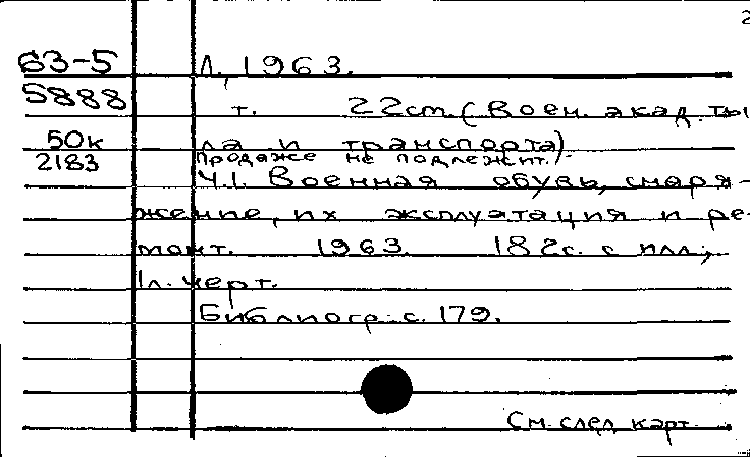 2
63-5 Л., 1963.
5888 т. 22 cm. (Воен. акад. ты
50к ла и транспорта)
2183 Продаже не подлежит.).
Ч.1. Военная обувь, снаря-
жение, их эксплуатация и ре-
монт. 1963. 182с. с илл.;
1л. черт.
Библиогр. с. 179.
См. след. карт.